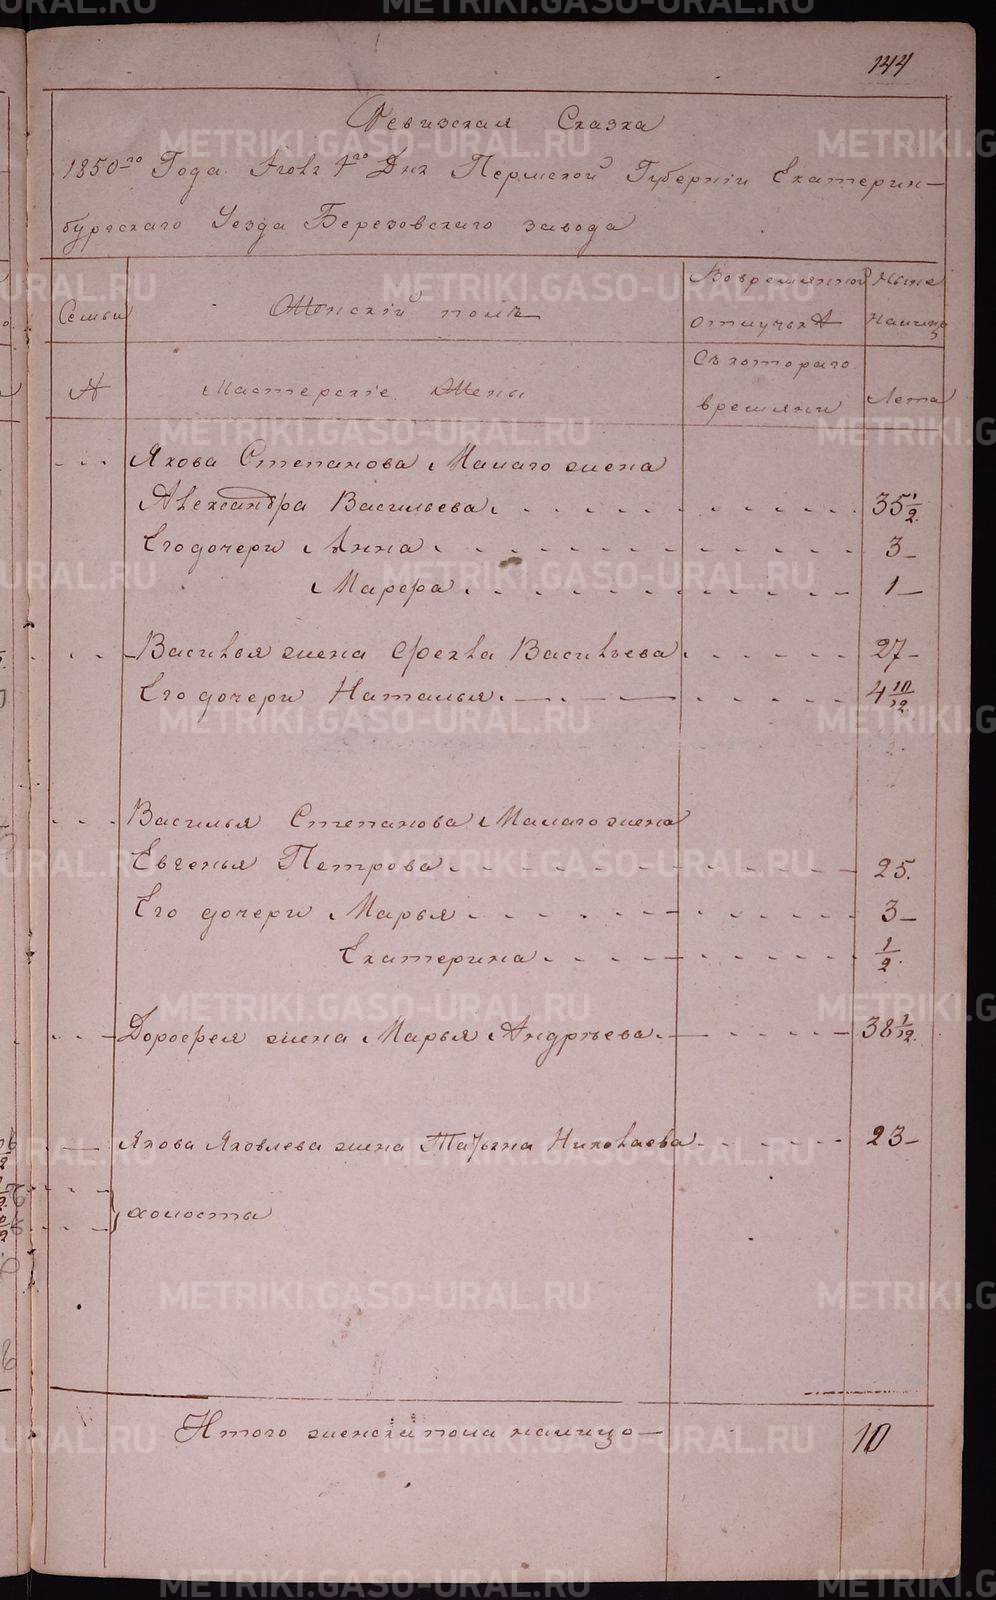 144
Ревизская Сказка
1850-го Года Июля 1го Дня Пермской Губерніи Екатерин-
бургскаго Уезда Березовского завода
Семьи Женскій полъ Во временной отлучьке Ныне Налицо
№ Мастерскіе Жены Съ котораго времяни Лета
Якова Степанова Малаго жена
Александра Васильева 35 1/2
Его дочери Анна 3
Марфа 1
Василья жена Фекла Васильева 27
Его дочери Наталья 4 10/12
Василья Степанова Малаго жена
Евгенья Петрова 25.
Его дочери Марья 3
Екатерина 1/2
Дорофея жена Марья Андреева 38 1/12
Якова Яковлева жена Татьяна Николаева 23
холосты
Итого женска пола налицо 10
METRIKI.GASO-URAL.RU